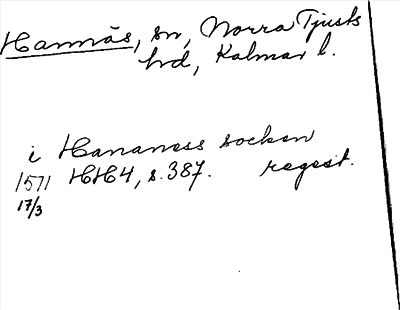 Hannäs, sn, Norra Tjusts
hd, Kalmar l.
i Hananess socken
1571 HH4, s. 387. regest.
17/3